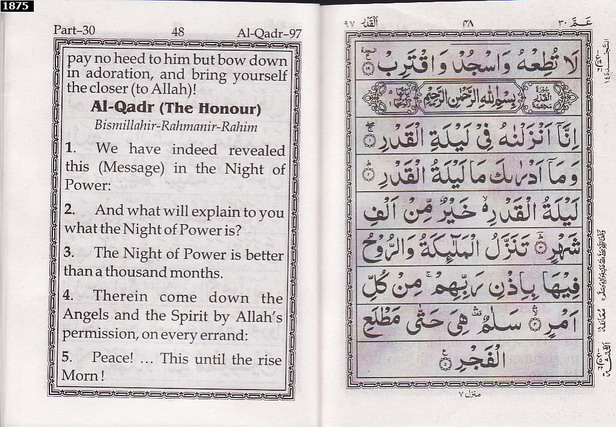 1875
Part–30 48 Al-Qadr–97
pay no heed to him but bow down
in adoration, and bring yourself
the closer (to Allah)!
Al-Qadr (The Honour)
Bismillahir-Rahmanir-Rahim
1. We have indeed revealed
this (Message) in the Night of
Power:
2. And what will explain to you
what the Night of Power is?
3. The Night of Power is better
than a thousand months.
4. Therein come down the
Angels and the Spirit by Allah's
permission, on every errand:
5. Peace! ... This until the rise
Morn!
عَمَّ ٣٠ ٤٨ القدر ٩٧
لَا تُطِعْهُ وَاسْجُدْ وَاقْتَرِبْ
بِسْمِ اللّٰهِ الرَّحْمٰنِ الرَّحِيْمِ
اِنَّاۤ اَنْزَلْنٰهُ فِيْ لَيْلَةِ الْقَدْرِ
وَمَاۤ اَدْرٰىكَ مَا لَيْلَةُ الْقَدْرِ
لَيْلَةُ الْقَدْرِ خَيْرٌ مِّنْ اَلْفِ
شَهْرٍ تَنَزَّلُ الْمَلٰٓئِكَةُ وَالرُّوْحُ
فِيْهَا بِاِذْنِ رَبِّهِمْ مِنْ كُلِّ
اَمْرٍ سَلٰمٌ هِيَ حَتّٰى مَطْلَعِ
الْفَجْرِ
منزل ٧